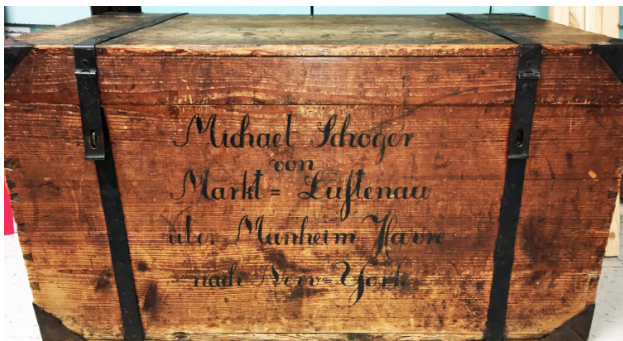 Michael Schoger
von
Markt = Luftenau
über Manheim Havre
nach New = York